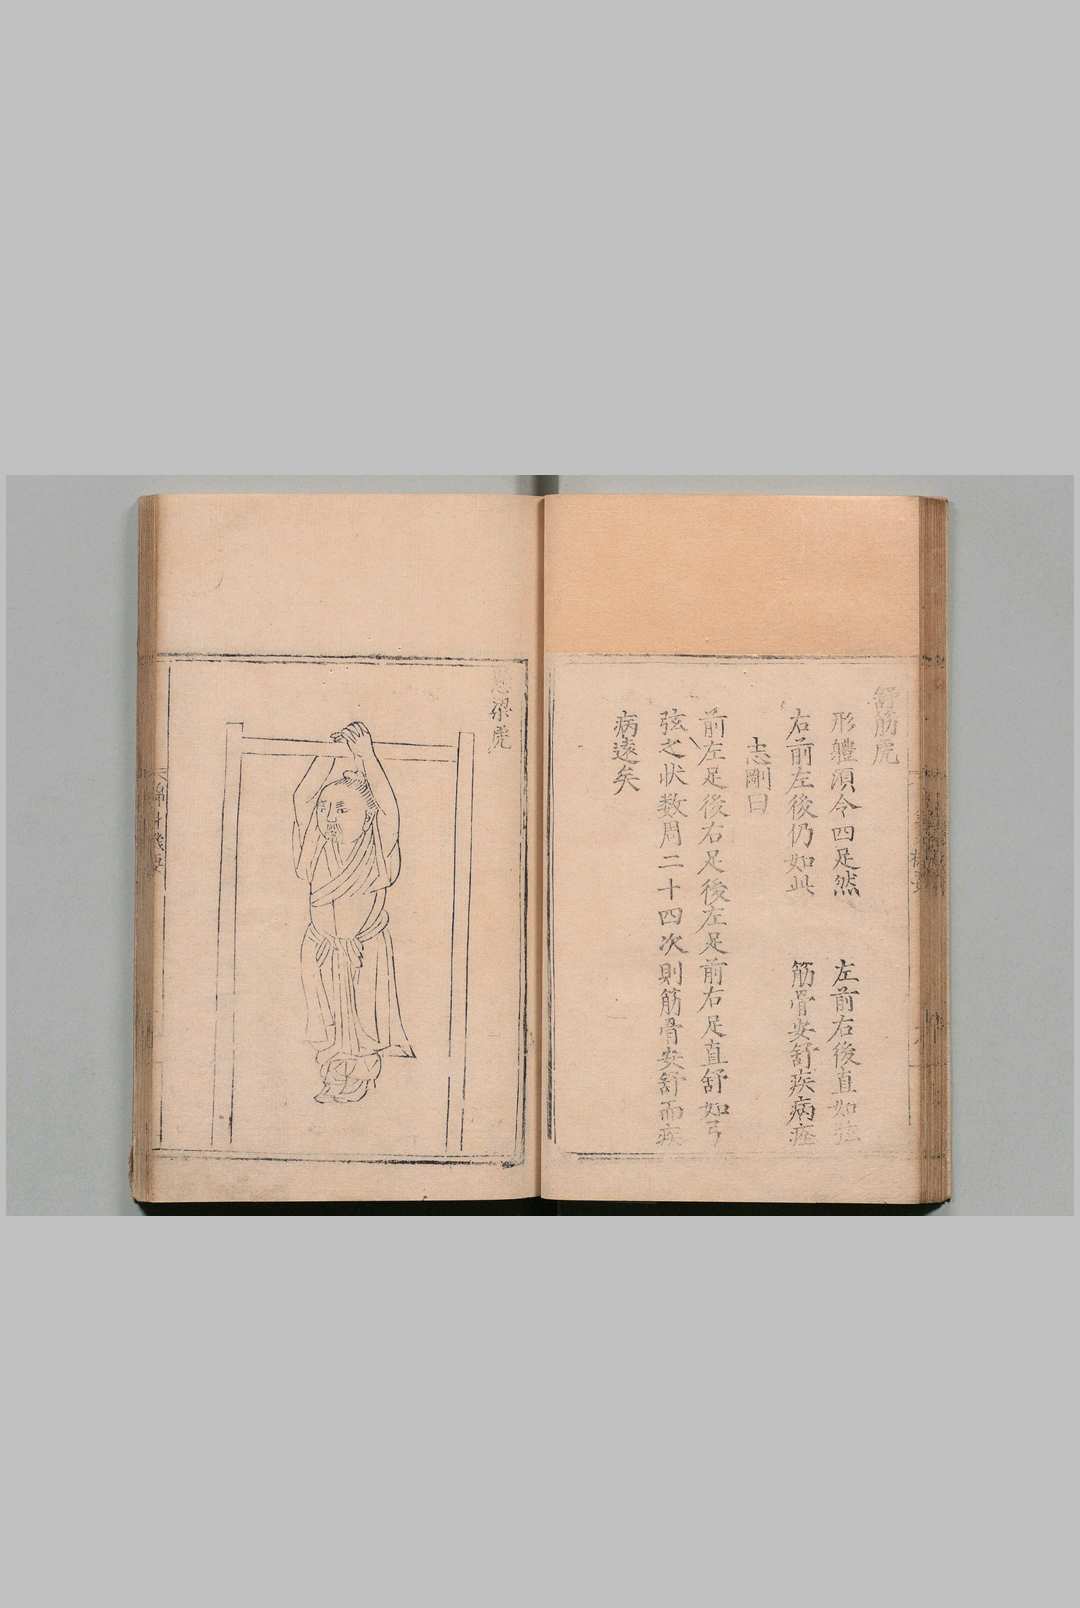 舒筋虎
形軆須令四足然　左前右後直如弦
右前左後仍如此　筋骨安舒疾病痊
志剛曰
前左足後右足後左足前右足直舒如弓
弦之状数周二十四次則筋骨安舒而疾
病遠矣
梁虎